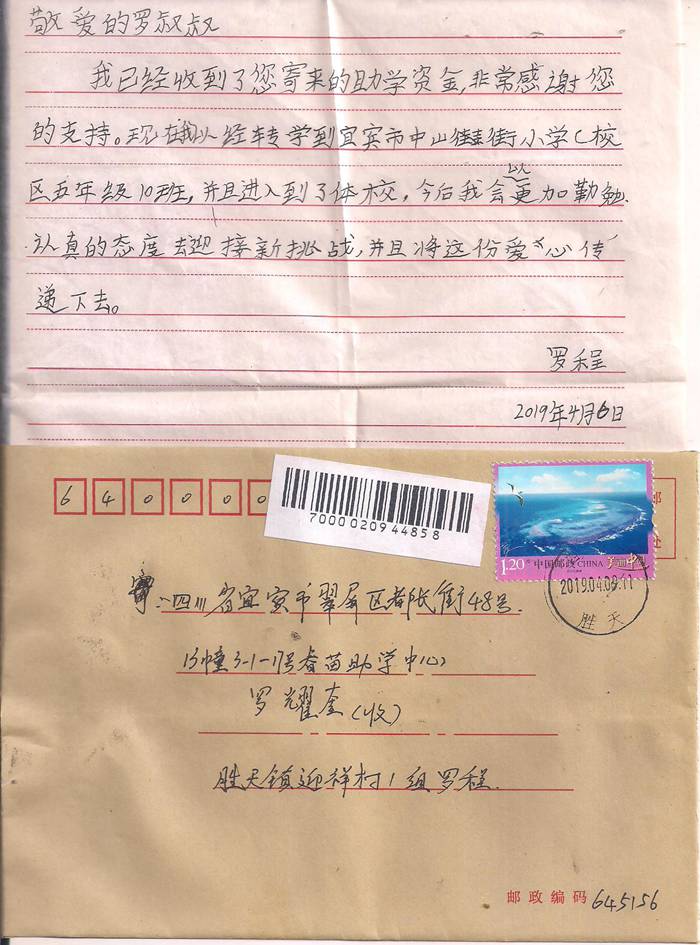 敬爱的罗叔叔
我已经收到了您寄来的助学资金,非常感谢您
的支持。现在我以经转学到宜宾市中山街街小学(校
区五年级10班,并且进入到了体校,今后我会以更加勤勉
认真的态度去迎接新挑战,并且将这份爱心传
递下去。
罗程
2019年4月6日
640000
7000020944858
1.20 中国邮政 CHINA 美丽中国
2019.04.09.11
胜天
寄:四川省宜宾市翠屏区都长街48号.
13幢3-1-1号春苗助学中心
罗耀奎(收)
胜天镇迎祥村1组罗程.
邮政编码645156